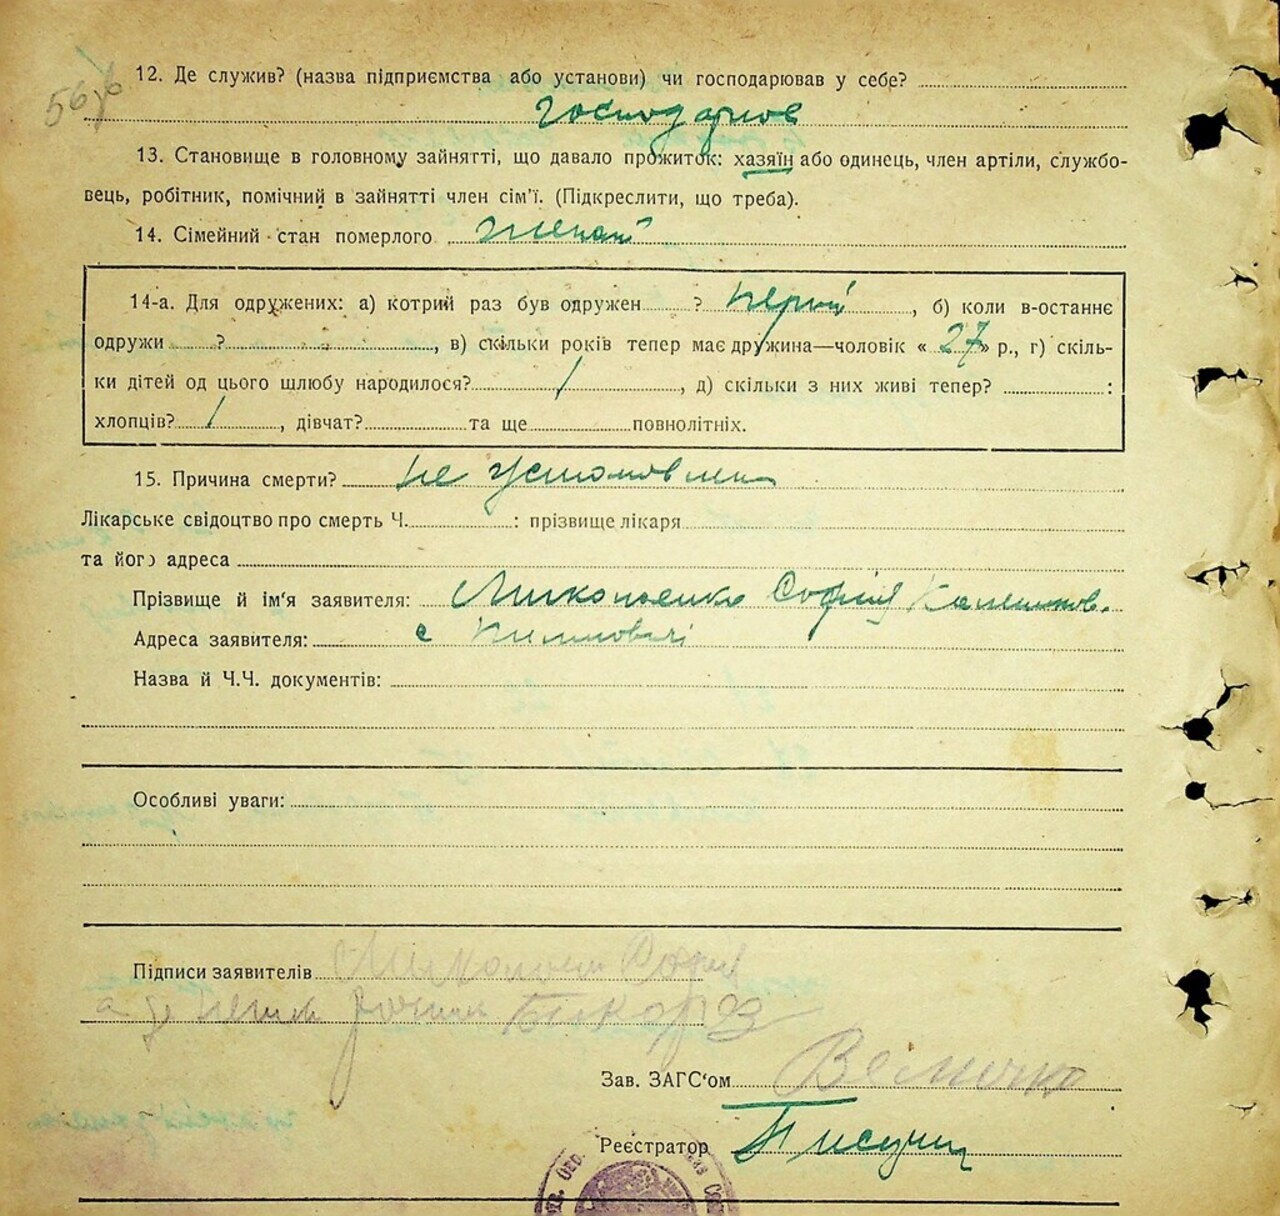 56
12. Де служив? (назва підприємства або установи) чи господарював у себе?
господарюв
13. Становище в головному зайнятті, що давало прожиток: хазяїн або одинець, член артіли, службо-
вець, робітник, помічний в зайнятті член сім'ї. (Підкреслити, що треба).
14. Сімейний стан померлого
14-а. Для одружених: а) котрий раз був одружен ? перший, б) коли в-останнє
одружи ?, в) скільки років тепер має дружина—чоловік «27» р., г) скіль-
ки дітей од цього шлюбу народилося? 1, д) скільки з них живі тепер? :
хлопців? 1, дівчат? та ще повнолітніх.
15. Причина смерти? не установлена
Лікарське свідоцтво про смерть Ч. : прізвище лікаря
та його адреса
Прізвище й ім'я заявителя: Софія
Адреса заявителя: с
Назва й Ч.Ч. документів:
Особливі уваги:
Підписи заявителів
Зав. ЗАГС'ом
Реєстратор